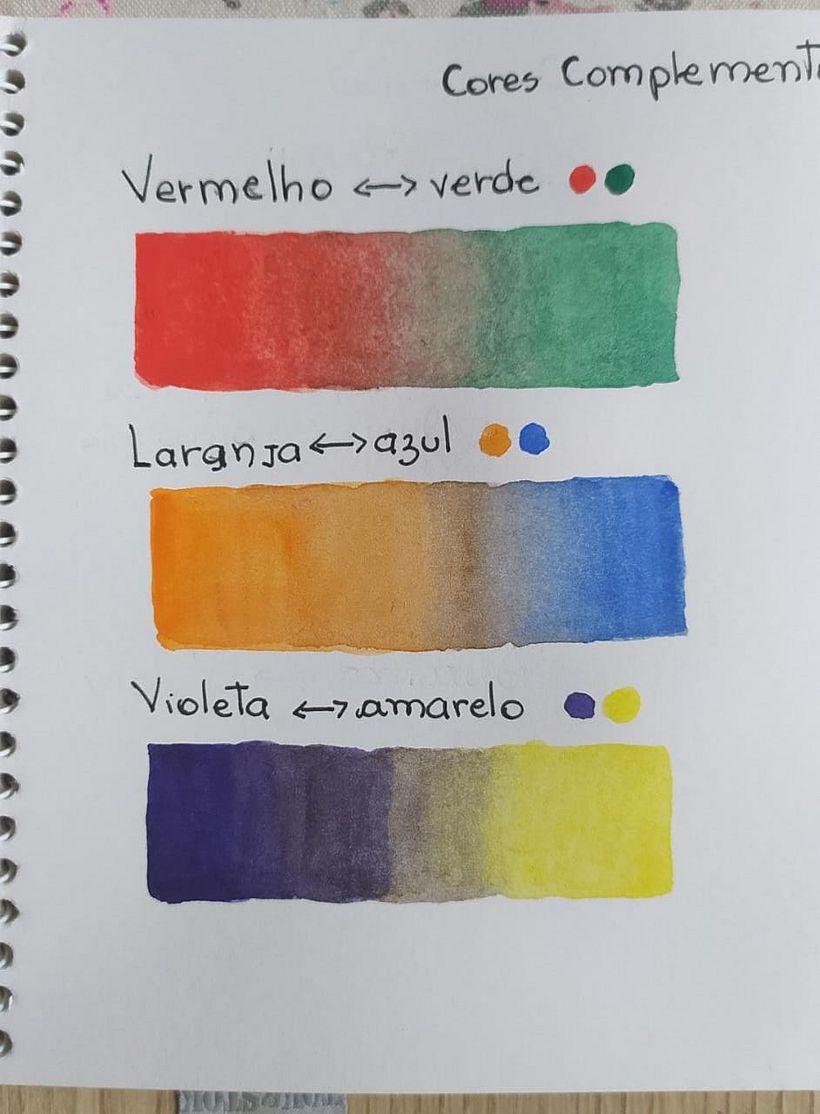 Cores Complement
Vermelho <-> verde
Laranja <-> azul
Violeta <-> amarelo